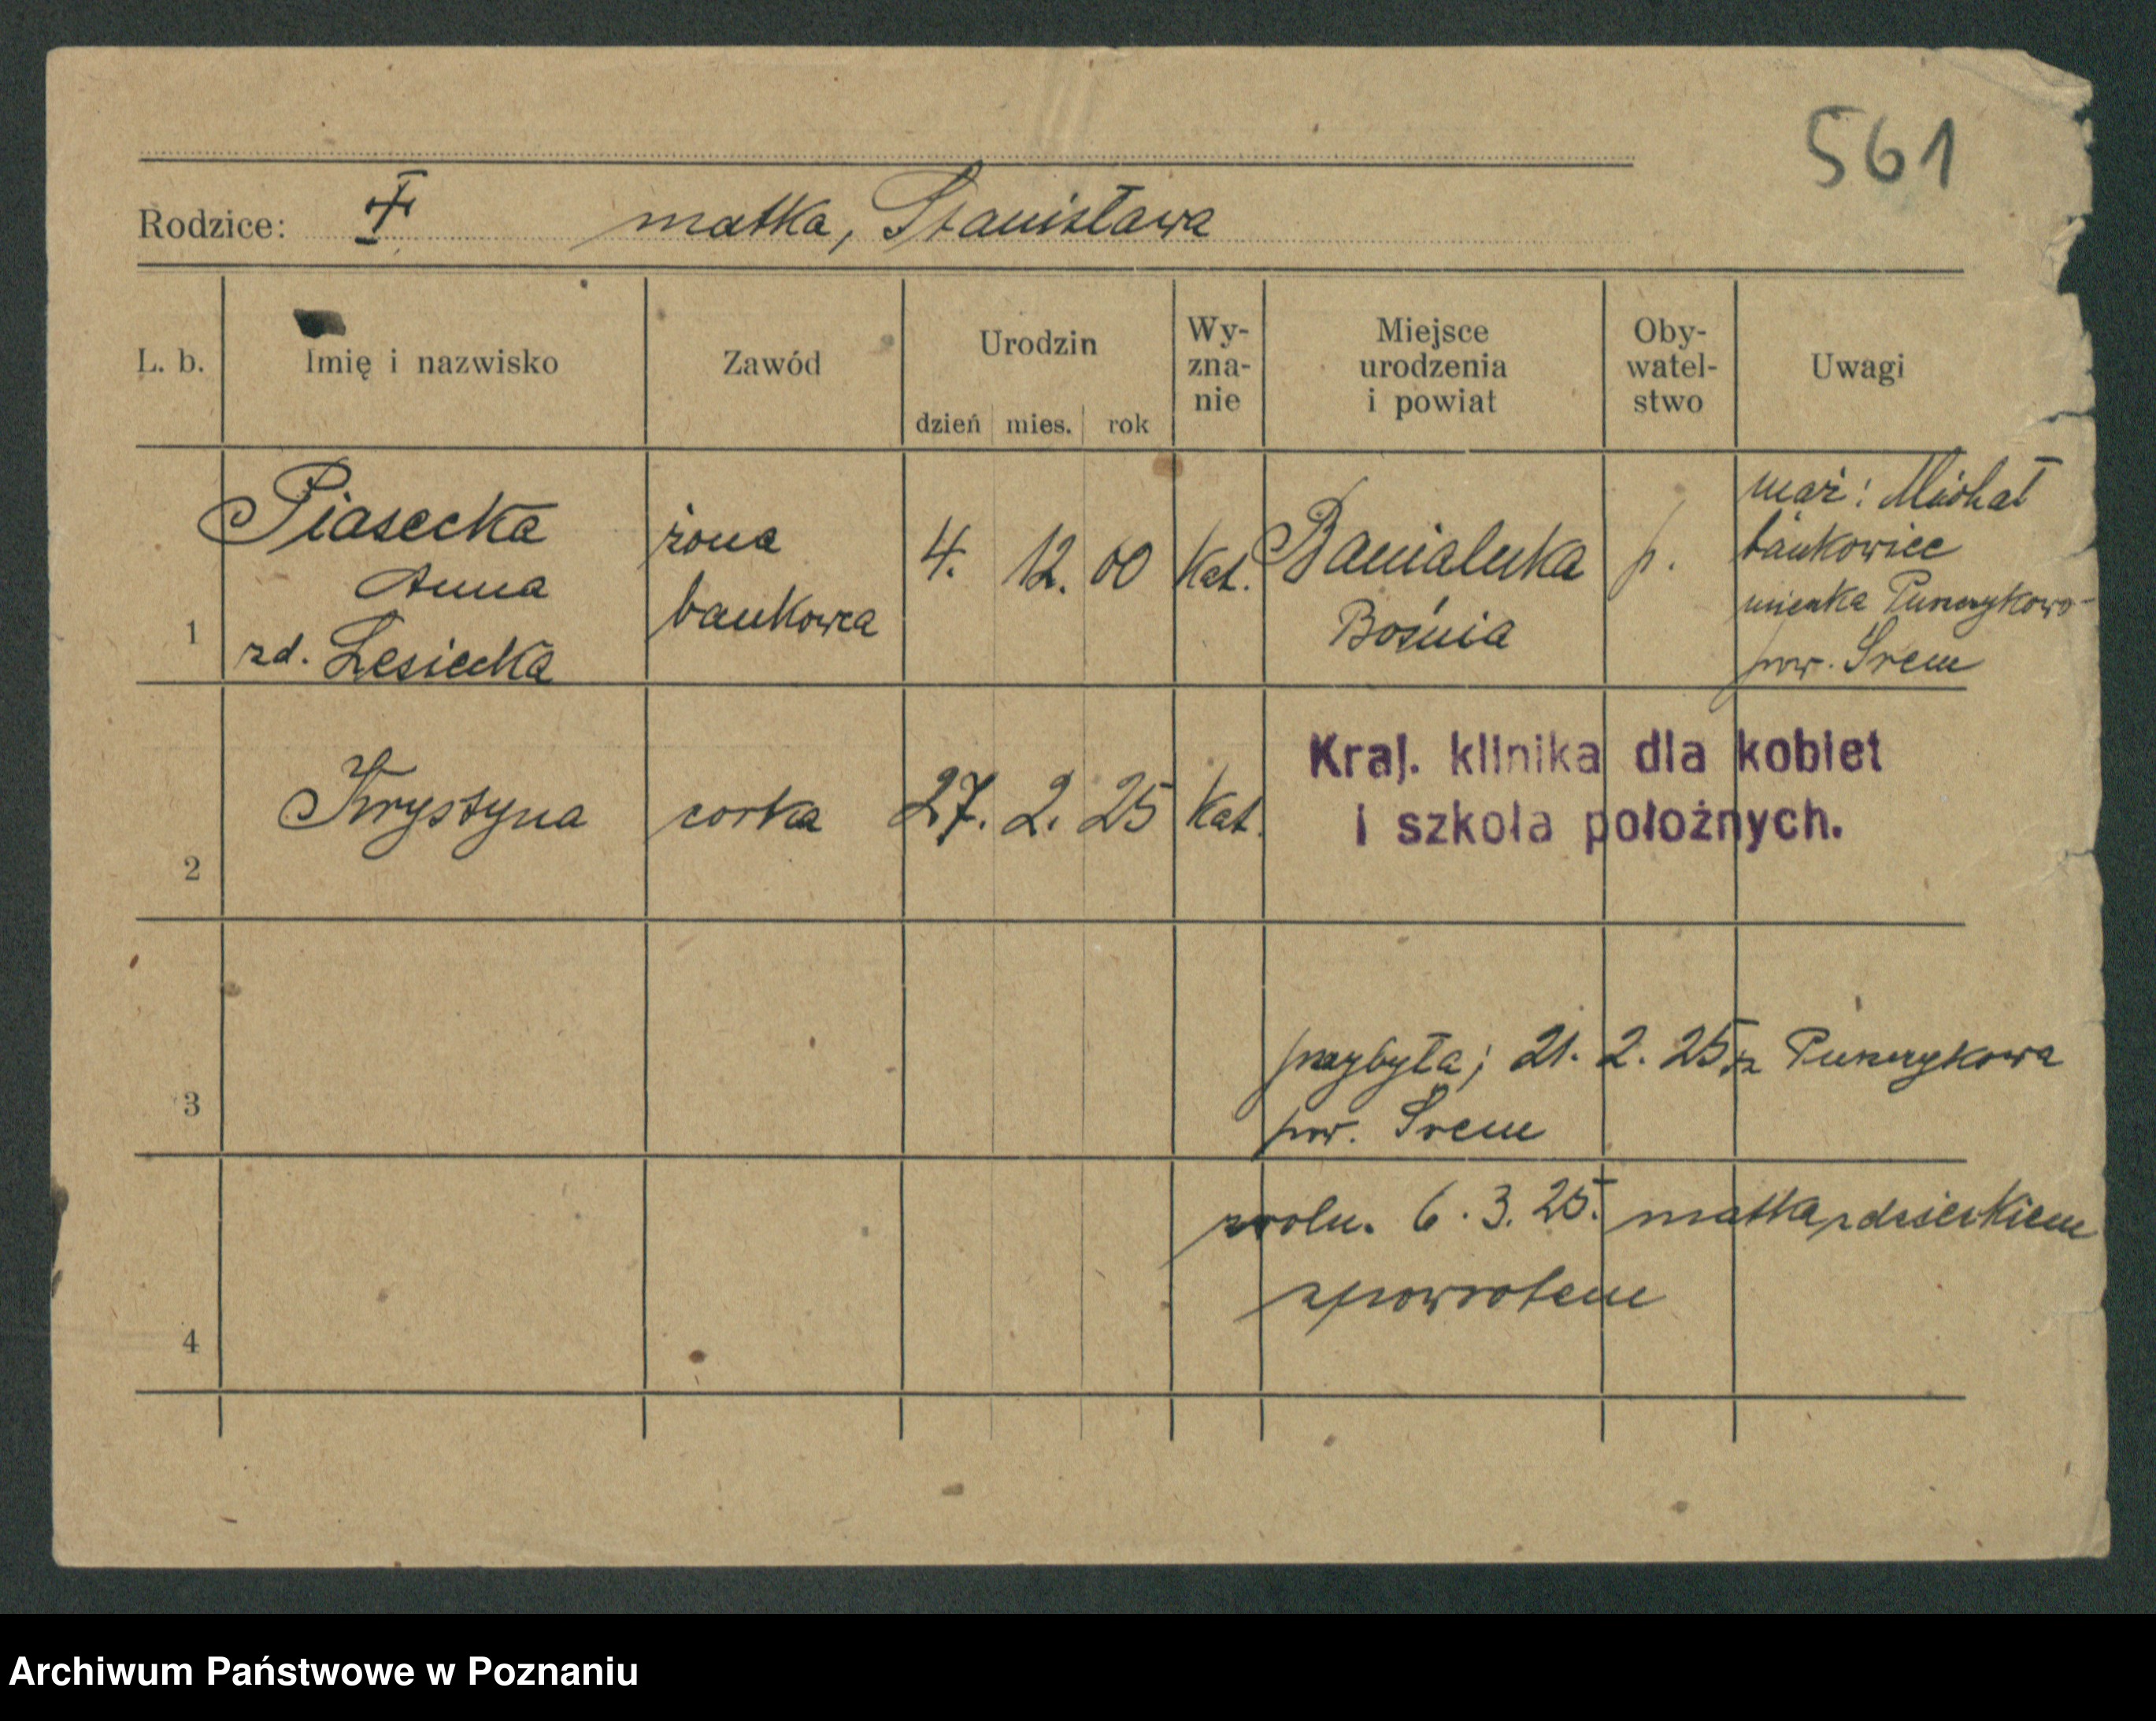 561
Rodzice: matka, Stanisława
L. b.
Imię i nazwisko
Zawód
Urodzin
dzień mies. rok
Wy-
zna-
nie
Miejsce
urodzenia
i powiat
Oby-
watel-
stwo
Uwagi
1
Piasecka
Anna
zd. Lesiecka
żona
bankowca
4. 12. 00
Kat.
Banialuka
Bośnia
p.
mąż: Michał
bankowiec
mieszka Puszczykowo
pow. Śrem
2
Krystyna
corka
27. 2. 25
Kat.
Kraj. klinika dla kobiet
i szkoła położnych.
3
przybyła; 21. 2. 25 z Puszczykowa
pow. Śrem
4
zwoln. 6. 3. 25. matka z dzieckiem
zpowrotem
Archiwum Państwowe w Poznaniu